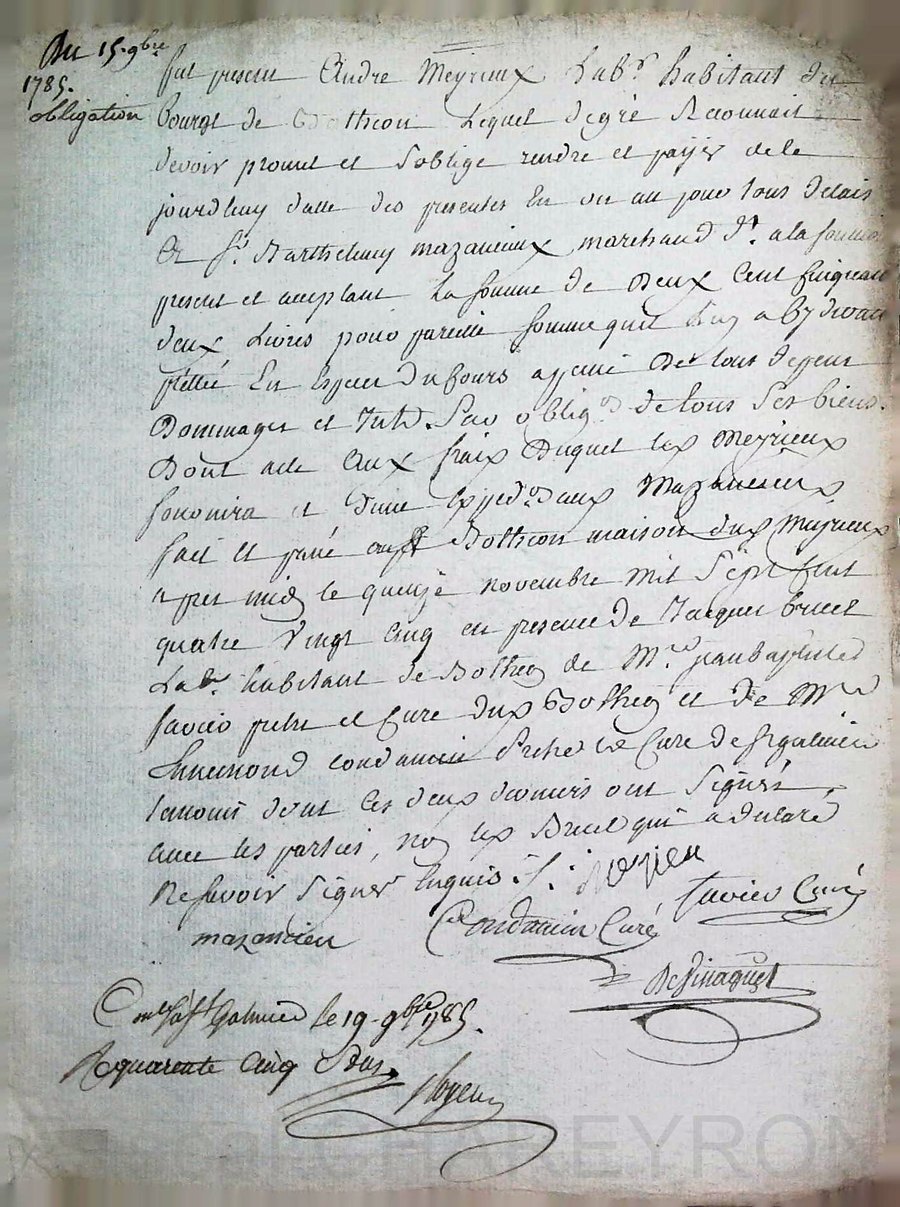 Du 15. 9bre
1785.
obligation
fut present andre Meyrieux Labr habitant du
bourg de Bothéon Lequel degré Reconnait
devoir promet et soblige rendre et payer de ce
jourdhuy datte des presentes En un an pour tous delais
a sr. Barthelemy mazanieux marchand dt. a la
present et aceptant la somme de Deux Cent Cinquante
deux Livres pour pareille somme quil luy a cy devant
pretté En Espece du Cours a peine De tous depens
Dommages et Intds. Sou obligon de tous ses biens.
Dont acte aux fraix Duquel led Meyrieux
fournira et dune Expedon aud Mazanieux
fait et passé aud Bothéon maison dud Meyrieux
apres midy le quinze novembre mil sept Cent
quatre Vingt Cinq en presence de Jacques bruel
Labr. habitant de Botheon de Mre jean baptiste
favier pretre et Curé dud Botheon et de Mre
Ennemond condamin Pretre et Curé de st galmier
temoins dont les deux derniers ont signés
avec les parties, non led Bruel qui a declaré
ne savoir signer Enquis
Meyrieu
favier Curé
mazancieu
Condamin Curé
Cmlé a st Galmier le 19. 9bre 1785.
R quarente Cinq sous